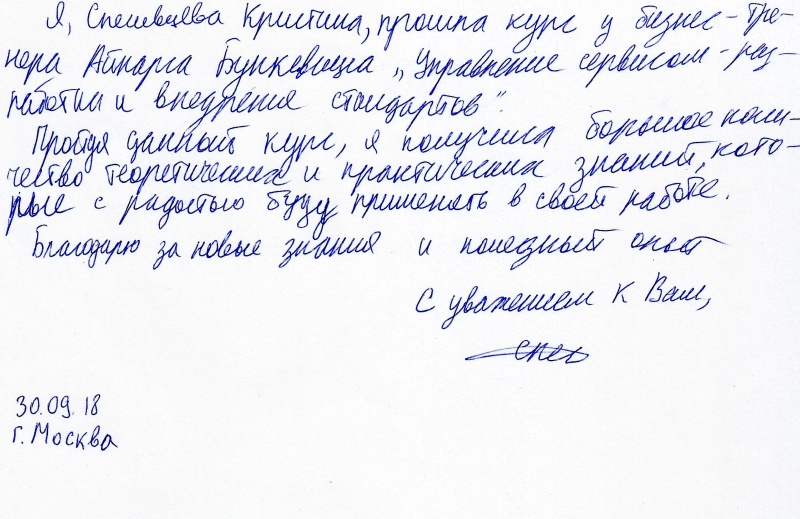 Я, Спешевцева Кристина, прошла курс у бизнес-тре-
нера Айнарга Бункевица „Управление сервисом - раз-
работка и внедрения стандартов".
Пройдя данный курс, я получила большое коли-
чество теоретических и практических знаний, кото-
рые с радостью буду применять в своей работе.
Благодарю за новые знания и полезный опыт
С уважением к Вам,
30.09.18
г. Москва